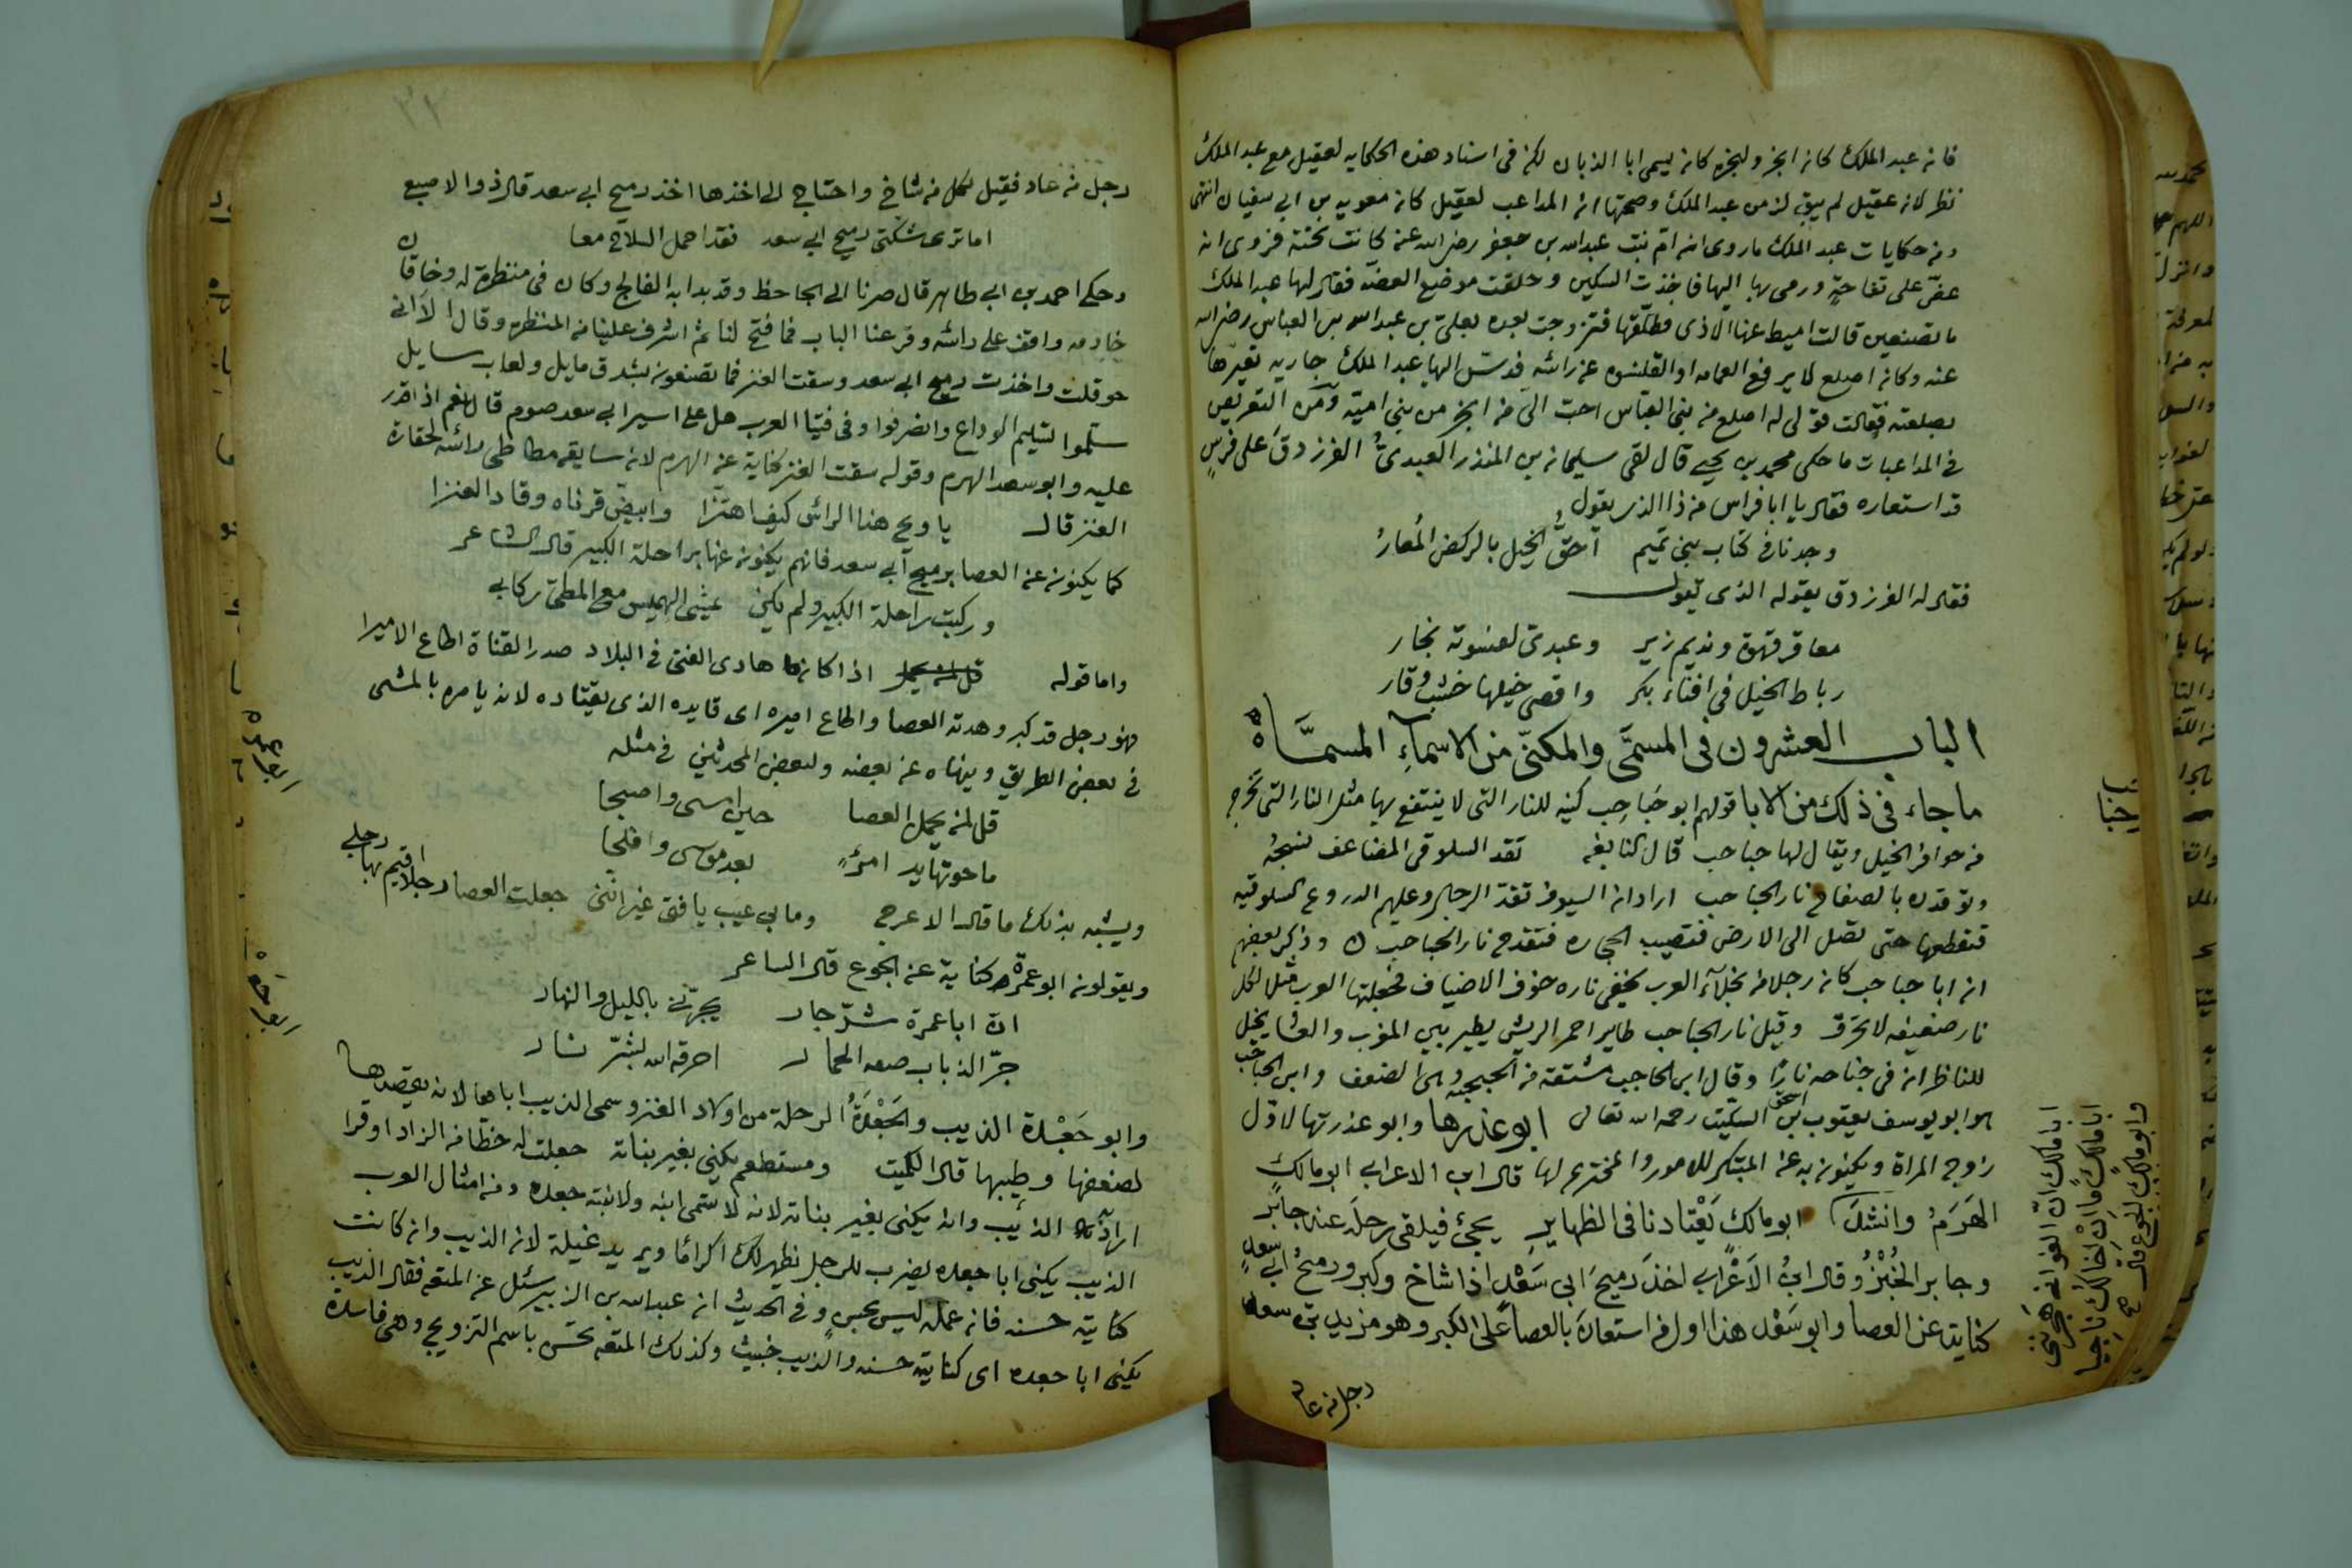 فانه عبد الملك كانه ابخر ولبخره كانه يسمى ابا الذبان لكن فى اسناد هذه الحكايه لعقيل مع عبد الملك
نظر لانه عقيل لم يبق لزمن عبد الملك وصحتها انه المداعب لعقيل كانه معويه بن ابى سفيان انتهى
ومن حكايات عبد الملك ماروى انه ام بنت عبدالله بن جعفر رضى الله عنه كانت تحته فروى انه
عض على تفاحة ورمى بها اليها فاخذت السكين وحلقت موضع العضه فقال لها عبد الملك
ما تصنعين قالت اميط عنها الاذى فطلقها فتزوجت بعده بعلى بن عبدالله بن العباس رضى الله
عنه وكانه اصلع لا يرفع العمامه او القلنسوه عن رأسه فدس اليها عبد الملك جاريه تعيرها
بصلعته فقالت قولى له اصلع من بنى العباس احب الى من ابخر من بنى اميه ومن التعريض
فى المداعبات ما حكى محمد بن يحيى قال لقى سليمانه بن المنذر العبدى الفرزدق على فرس
قد استعاره فقال يا ابا فراس من ذا الذى يقول
وجدنا فى كتاب بنى تميم احق الخيل بالركض المعار
فقال له الفرزدق يقوله الذى يقول
معاقر قهوة ونديم زير وعبدى لفسوته بخار
رباط الخيل فى افناء بكر واقصى خيلها خشب وقار
الباب العشرون فى المسمى والمكنى من الاسماء المسماه
ما جاء فى ذلك من الابا قولهم ابو حباحب كنيه للنار التى لا ينتفع بها مثل النار التى تخرج
من حوافر الخيل ويقال لها حباحب قال النابغه تقد السلوقى المضاعف نسجه
وتوقدن بالصفاح نار الحباحب اراد انه السيوف تقد الرجال وعليهم الدروع السلوقيه
فتقطعها حتى تصل الى الارض فتصيب الحجاره فتقدح نار الحباحب وذكر بعضهم
انه ابا حباحب كانه رجلا من بخلاء العرب يخفى ناره خوف الاضياف فجعلتها العرب مثلا لكل
نار ضعيفه لا تحرق وقيل نار الحباحب طاير احمر الريش يطير بين المغرب والعشا يخيل
للناظر انه فى جناحه نارا وقال ابن الحاجب مشتقه من الحبحبه وهى الضعف وابن الحباحب
هو ابو يوسف يعقوب بن اسحق السكيت رحمه الله تعالى ابو عذرها وابو عذرتها لاول
زوج المراة ويكنونه به عن المبتكر للامور والمخترع لها قال ابن الاعرابى ابو مالك
الهرم وانشد ابو مالك يعتادنا فى الظهاير يجئ فيلقى رحله عند جابر
وجابر الخبز وقال ابن الاعرابى اخذ رميح ابى سعد اذا شاخ وكبر ورميح ابى سعد
كناية عن العصا وابو سعد هذا اول من استعان بالعصا على الكبر وهو مزيد بن سعد
رجل من عاد
حباحب
ابا مالك ان الغوانى هجرننى
ابا مالك انى اظنك
وابو مالك الجوع قال
رجل من عاد فقيل لكل من شاخ واحتاج الى اخذها اخذ رميح ابى سعد قال ذو الاصبع
اما ترى شكتى رميح ابى سعد فقد احمل السلاح معا
وحكى احمد بن ابى طاهر قال صرنا الى الجاحظ وقد بدا به الفالج وكان فى منظرة له وخاقان
خادمه واقف على رأسه وقرعنا الباب فما فتح لنا ثم اشرف علينا من المنظره وقال الا انى
حوقلت واخذت رميح ابى سعد وسقت العنز فما تصنعون بشدق مايل ولعاب سايل
سلموا تسليم الوداع وانصرفوا وفى فتيا العرب هل على اسير ابى سعد صوم قال نعم اذا قدر
عليه وابو سعد الهرم وقوله سقت العنز كناية عن الهرم لانه سايقه مطاطى رأسه لحقارة
العنز قال يا ويح هذا الرأس كيف اهتزا وابيض قرناه وقاد العنزا
كما يكنونه عن العصا برميح ابى سعد فانهم يكنونه عنها براحلة الكبير قال الشاعر
وركبت راحلة الكبير ولم يكن يمشى الهميس مع المطى ركابى
واما قوله اذا كانه هادى الفتى فى البلاد صدر القناة اطاع الاميرا
فهو رجل قد كبر وهدته العصا واطاع اميره اى قايده الذى يقتاده لانه يامره بالمشى
فى بعض الطريق وينهاه عن بعضه ولبعض المحدثين فى مثله
قل لمن يحمل العصا حين امسى واصبحا
ما حوتها يد امرئ بعد موسى وافلحا
ويشبه بذلك ما قاله الاعرج وما بى عيب يا فتى غير اننى جعلت العصا رجلا اقيم بها رجلى
ويقولونه ابو عمرة كناية عن الجوع قال الشاعر
انه ابا عمرة شر جار يجرنى بالليل والنهار
جر الذباب الحمار احرقه الله بشر نار
وابو جعدة الذيب والجعدة الرحلة من اولاد العنز وسمى الذيب اباها لانه يقصدها
لضعفها وطيبها قال الكميت ومستطعم يكنى بغير بناته جعلت له حظا من الزاد اوفرا
اراد الذئب وانه يكنى بغير بناته لانه لا تسمى ابنه ولا ابنته جعده ومن امثال العرب
الذيب يكنى ابا جعده يضرب للرجل يظهر لك اكراما ويريد غيلة لانه الذيب وانه كانت
كنايته حسنه فانه عمله ليس بحسن وفى الحديث انه عبد الله بن الزبير سئل عن المتعه فقال الذيب
يكنى ابا جعده اى كنايته حسنه والذيب خبيث وكذلك المتعه تحسن باسم التزويج وهى فاسدة
ابو عمره
ابو جعده